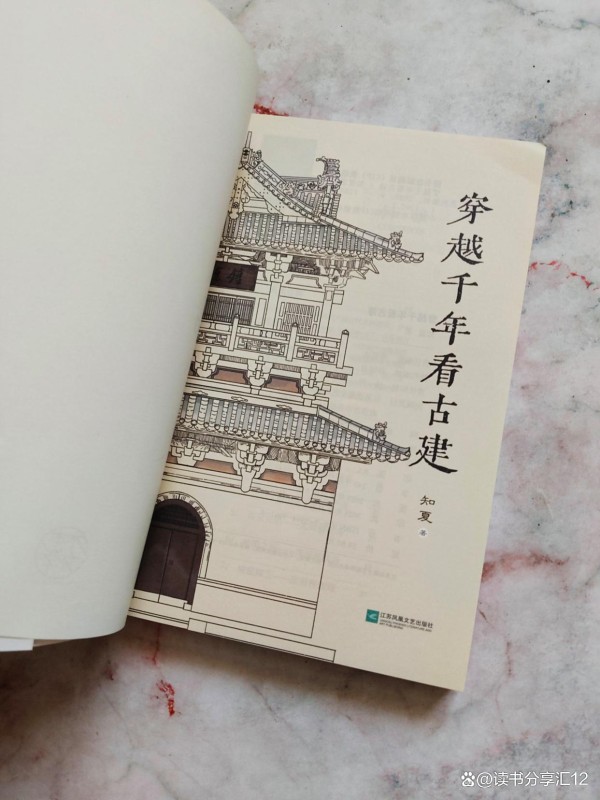 穿越千年看古建
知夏 著
江苏凤凰文艺出版社
@读书分享汇12